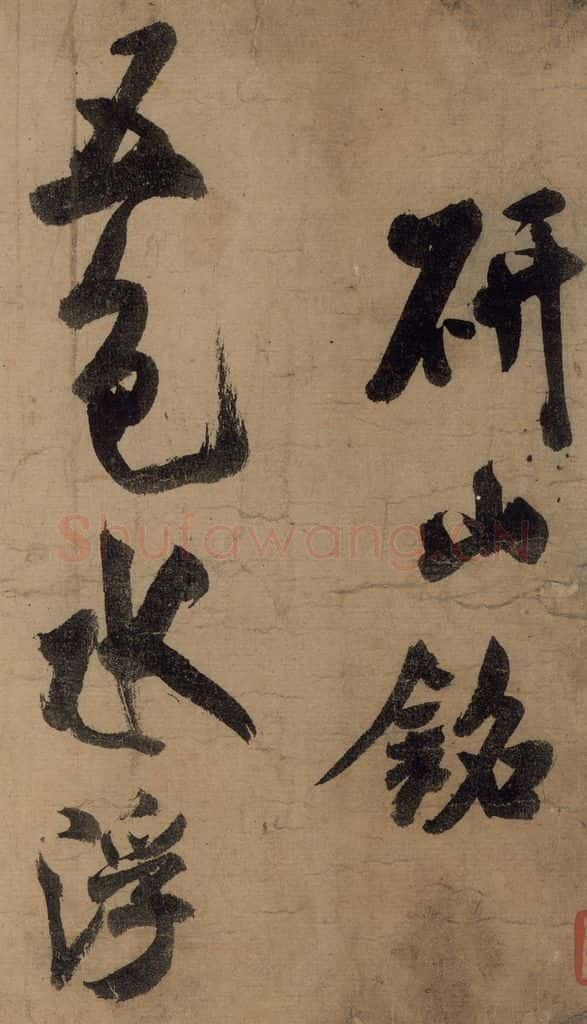 研山銘
五色水浮
Shufawang.CN